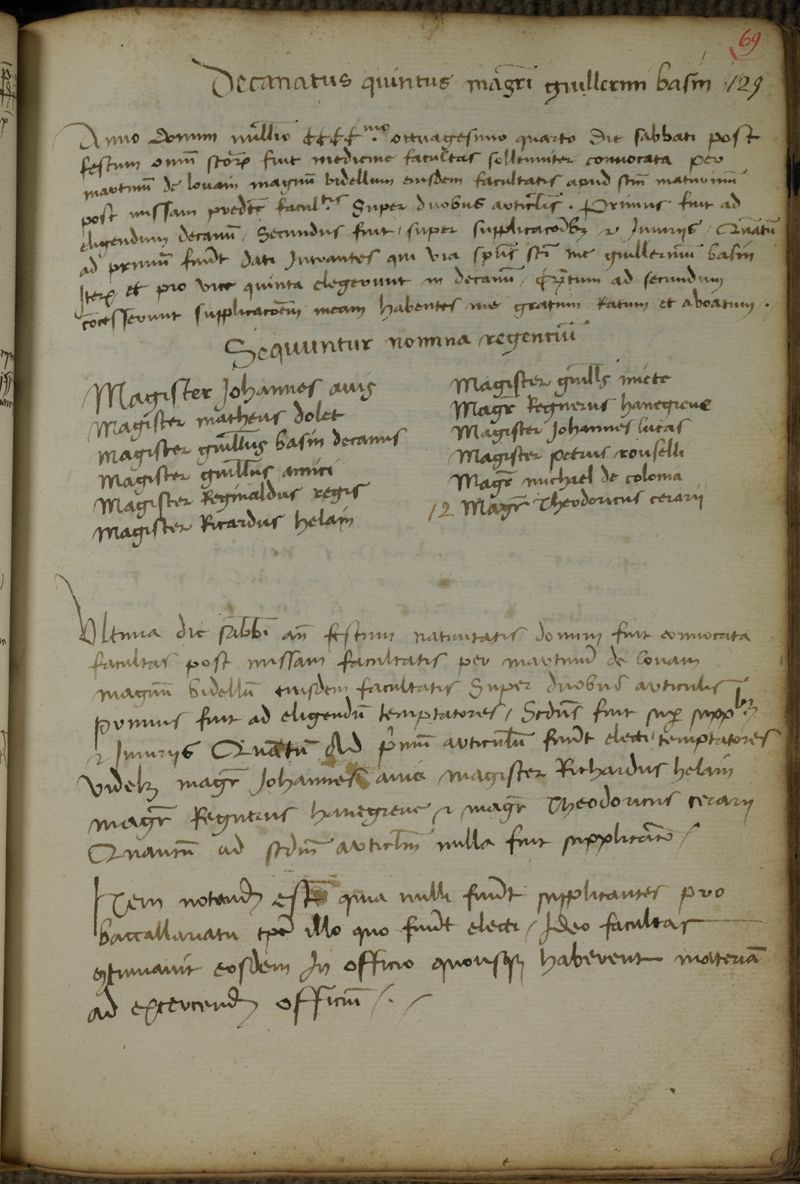 69
Decanatus quintus magri guillermi basin 129
Anno domini millio CCCC mo octuagesimo quarto die sabbati post
festum omm scorz fuit medicine facultas sollenniter convocata per
martinum de lovain magnum bidellum eiusdem facultatis apud scm maturinum
post missam predcte facultis Super duobus articlis . Primus fuit ad
eligendum decanum / Secundus fuit / super supplicacoibz et Iniuriis / Quatum
ad primum fuert dati Intrantes qui via spus sci me guillermum basin
Iterz et pro vice quinta elegerunt in decanum / quatum ad secundum
concesserunt supplicacoem meam habentes me gratum Ratum et
Sequuntur nomina regentium
Magister Johannes avis
Magister matheus dolet
magister guillus basin decanus
Magister guillus amici
Magister Reginaldus regis
Magister Ricardus helain
Magister guills miete
Magr Regnerus hanegreve
Magister Johannes lucas
Magister petrus rouselli
Magr michael de colonia
12 Magr Theodoricus cerarii
Ultima die sabbi an festum nativitatis domini fuit convocata
facultas post missam facultatis per martinum de lovain
magnum bidellum eiusdem facultatis Super duobus articulis
primus fuit ad eligendum temptatores / Scdus fuit sup supplbz
et Iniuriis Quatum Ad primum articulum fuert electi temptatores
videlz magr Johannes avis magister Richardus helain
magr Regnerus hanegreve et magr Theodoricus cerarii
Quantum ad scdm articlm nulla fuit supplicato /
Item notand est quia nulli fuert supplicantes pro
baccallariatu tpe illo quo fuert electi / Ideo facultas
continuavit eosdem In officio quousqz haberent materiam
ad excercend officium / .